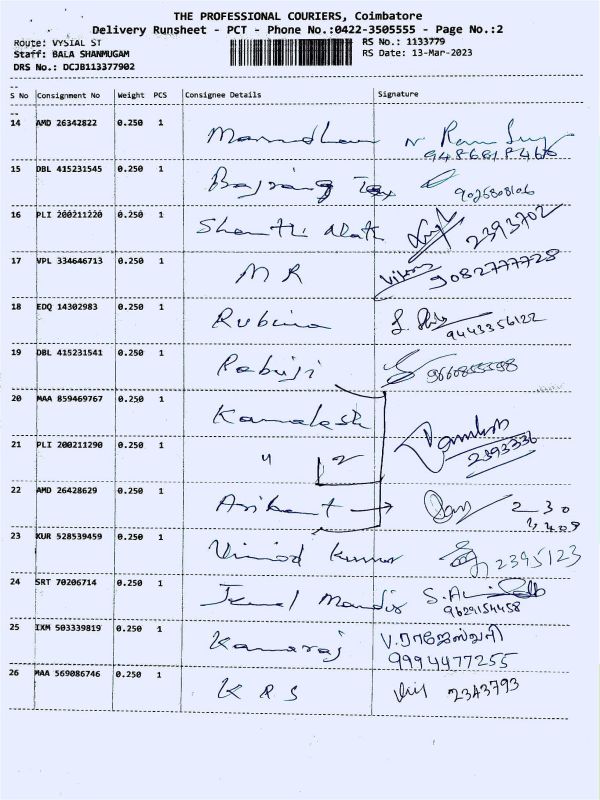 THE PROFESSIONAL COURIERS, Coimbatore
Delivery Runsheet - PCT - Phone No.:0422-3505555 - Page No.:2
Route: VYSIAL ST
RS No.: 1133779
Staff: BALA SHANMUGAM
RS Date: 13-Mar-2023
DRS No.: DCJB113377902
S No Consignment No Weight PCS Consignee Details Signature
14 AMD 26342822 0.250 1
15 DBL 415231545 0.250 1 Bajrang Tex 9025808106
16 PLI 200211220 0.250 1 Shanthi 2393702
17 VPL 334646713 0.250 1 M R 9082777728
18 EDQ 14302983 0.250 1 Rubina 9443356122
19 DBL 415231541 0.250 1
20 MAA 859469767 0.250 1 Kamalesh
21 PLI 200211290 0.250 1 " 2 2393336
22 AMD 26428629 0.250 1 Arihant → 230
23 KUR 528539459 0.250 1 Vinod Kumar 2395123
24 SRT 70206714 0.250 1 9629154458
25 IXM 503339819 0.250 1 Kamaraj V.ராஜேஸ்வரி
9994477255
26 MAA 569086746 0.250 1 K R S 2343793